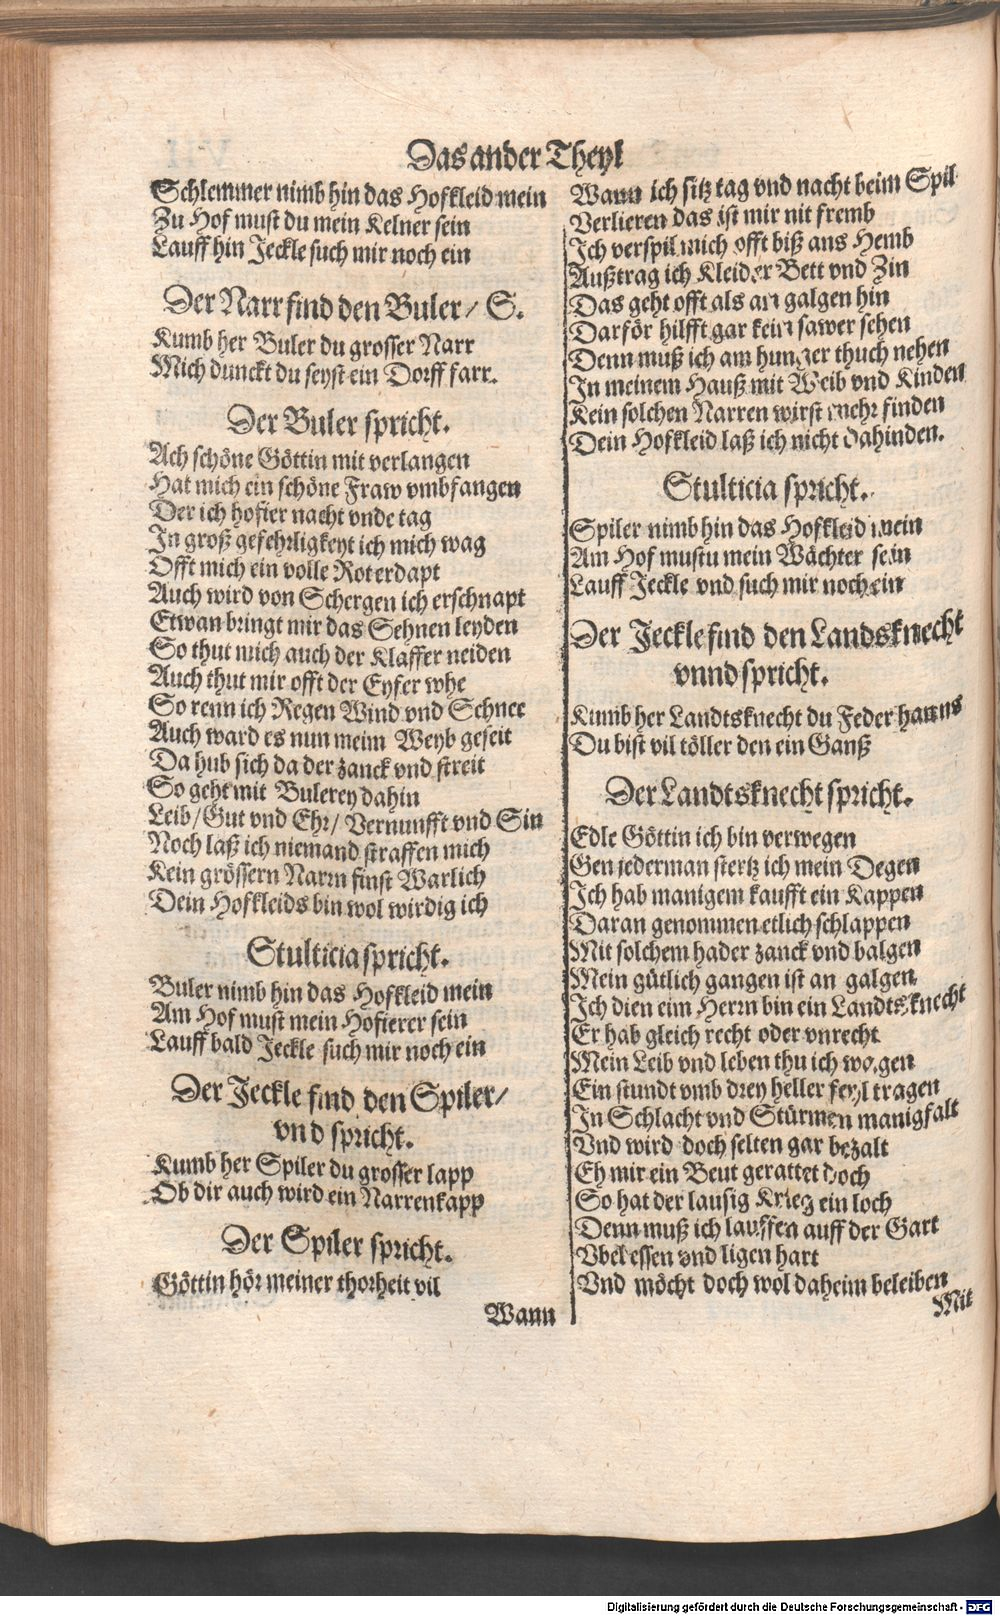 Das ander Theyl
Schlemmer nimb hin das Hofkleid mein
Zu Hof must du mein Kelner sein
Lauff hin Jeckle such mir noch ein
Der Narr find den Buler / S.
Kumb her Buler du grosser Narr
Mich dunckt du seyst ein Dorff farr.
Der Buler spricht.
Ach schöne Göttin mit verlangen
Hat mich ein schöne Fraw vmbfangen
Der ich hofier nacht vnde tag
In groß gefehrligkeyt ich mich wag
Offt mich ein volle Rot erdapt
Auch wird von Schergen ich erschnapt
Etwan bringt mir das Sehnen leyden
So thut mich auch der Klaffer neiden
Auch thut mir offt der Eyfer whe
So renn ich Regen Wind vnd Schnee
Auch ward es nun meim Weyb geseit
Da hub sich da der zanck vnd streit
So geht mit Bulerey dahin
Leib / Gut vnd Ehr / Vernunfft vnd Sin
Noch laß ich niemand straffen mich
Kein grössern Narrn finst Warlich
Dein Hofkleids bin wol wirdig ich
Stulticia spricht.
Buler nimb hin das Hofkleid mein
Am Hof must mein Hofierer sein
Lauff bald Jeckle such mir noch ein
Der Jeckle find den Spiler /
vnd spricht.
Kumb her Spiler du grosser lapp
Ob dir auch wird ein Narrenkapp
Der Spiler spricht.
Göttin hör meiner thorheit vil
Wann
Wann ich sitz tag vnd nacht beim Spil
Verlieren das ist mir nit fremb
Ich verspil mich offt biß ans Hemb
Außtrag ich Kleider Bett vnd Zin
Das geht offt als an galgen hin
Darför hilfft gar kein sawer sehen
Denn muß ich am hunger thuch nehen
In meinem Hauß mit Weib vnd Kinden
Kein solchen Narren wirst mehr finden
Dein Hofkleid laß ich nicht dahinden.
Stulticia spricht.
Spiler nimb hin das Hofkleid mein
Am Hof mustu mein Wächter sein
Lauff Jeckle vnd such mir noch ein
Der Jeckle find den Landsknecht
vnnd spricht.
Kumb her Landtsknecht du Feder hanns
Du bist vil töller den ein Ganß
Der Landtsknecht spricht.
Edle Göttin ich bin verwegen
Gen jederman stertz ich mein Degen
Ich hab manigem kaufft ein Kappen
Daran genommen etlich schlappen
Mit solchem hader zanck vnd balgen
Mein gütlich gangen ist an galgen
Ich dien eim Herrn bin ein Landtsknecht
Er hab gleich recht oder vnrecht
Mein Leib vnd leben thu ich wogen
Ein stundt vmb drey heller feyl tragen
In Schlacht vnd Stürmen manigfalt
Vnd wird doch selten gar bezalt
Eh mir ein Beut gerattet doch
So hat der lausig Krieg ein loch
Denn muß ich lauffen auff der Gart
Vbel essen vnd ligen hart
Vnd möcht doch wol daheim beleiben
Mit
Digitalisierung gefördert durch die Deutsche Forschungsgemeinschaft - DFG